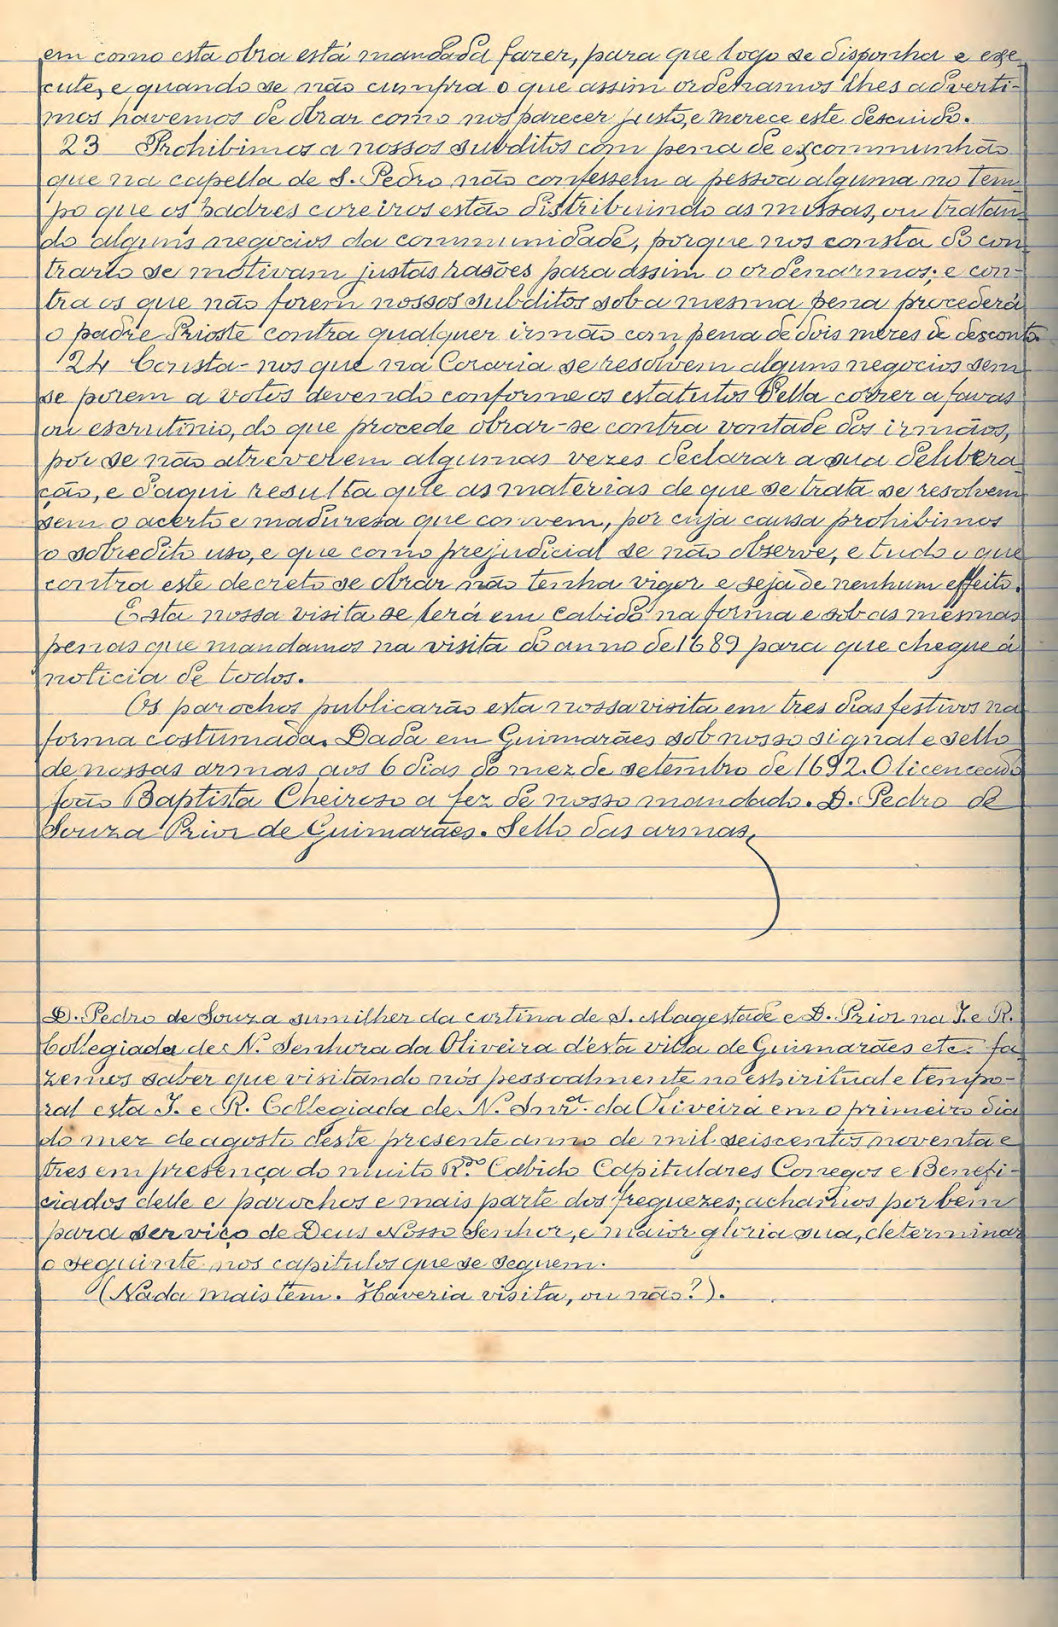 em como esta obra está mandada fazer, para que logo se disponha e exe-
cute, e quando se não cumpra o que assim ordenamos lhes adverti-
mos havemos de obrar como nos parecer justo, e merece este descuido.
23 Prohibimos a nossos subditos com pena de excommunhão
que na capella de S. Pedro não confessem a pessoa alguma no tem-
po que os padres coreiros estão distribuindo as missas, ou tratan-
do alguns negocios da communidade, porque nos consta do con-
trario se motivam justas rasões para assim o ordenarmos; e con-
tra os que não forem nossos subditos sob a mesma pena procederá
o padre Prioste contra qualquer irmão com pena de dois mezes de desconto.
24 Consta-nos que na Coraria se resolvem alguns negocios sem
se porem a votos devendo conforme os estatutos d'ella correr a favas
ou escrutinio, do que procede obrar-se contra vontade dos irmãos,
por se não atreverem algumas vezes declarar a sua delibera-
ção, e d'aqui resulta que as materias de que se trata se resolvem
sem o acerto e maduresa que convem, por cuja causa prohibimos
o sobredito uso, e que como prejudicial se não observe, e tudo o que
contra este decreto se obrar não tenha vigor e seja de nenhum effeito.
Esta nossa visita se lerá em cabido na forma e sob as mesmas
penas que mandamos na visita do anno de 1689 para que chegue á
noticia de todos.
Os parochos publicarão esta nossa visita em tres dias festivos na
forma costumada. Dada em Guimarães sob nosso signal e sello
de nossas armas aos 6 dias do mez de setembro de 1692. O licenceado
João Baptista Cheiroso a fez de nosso mandado. D. Pedro de
Souza Prior de Guimarães. Sello das armas,
D. Pedro de Souza sumilher da cortina de S. Magestade e D. Prior na I. e R.
Collegiada de N. Senhora da Oliveira d'esta villa de Guimarães etc. fa-
zemos saber que visitando nós pessoalmente no espiritual e tempo-
ral esta I. e R. Collegiada de N. Snrª. da Oliveira em o primeiro dia
do mez de agosto deste presente anno de mil seiscentos noventa e
tres em presença do muito R.do Cabido Capitulares Conegos e Benefi-
ciados delle e parochos e mais parte dos freguezes; achamos por bem
para serviço de Deus Nosso Senhor, e maior gloria sua, determinar
o seguinte nos capitulos que se seguem.
(Nada mais tem. Haveria visita, ou não?).